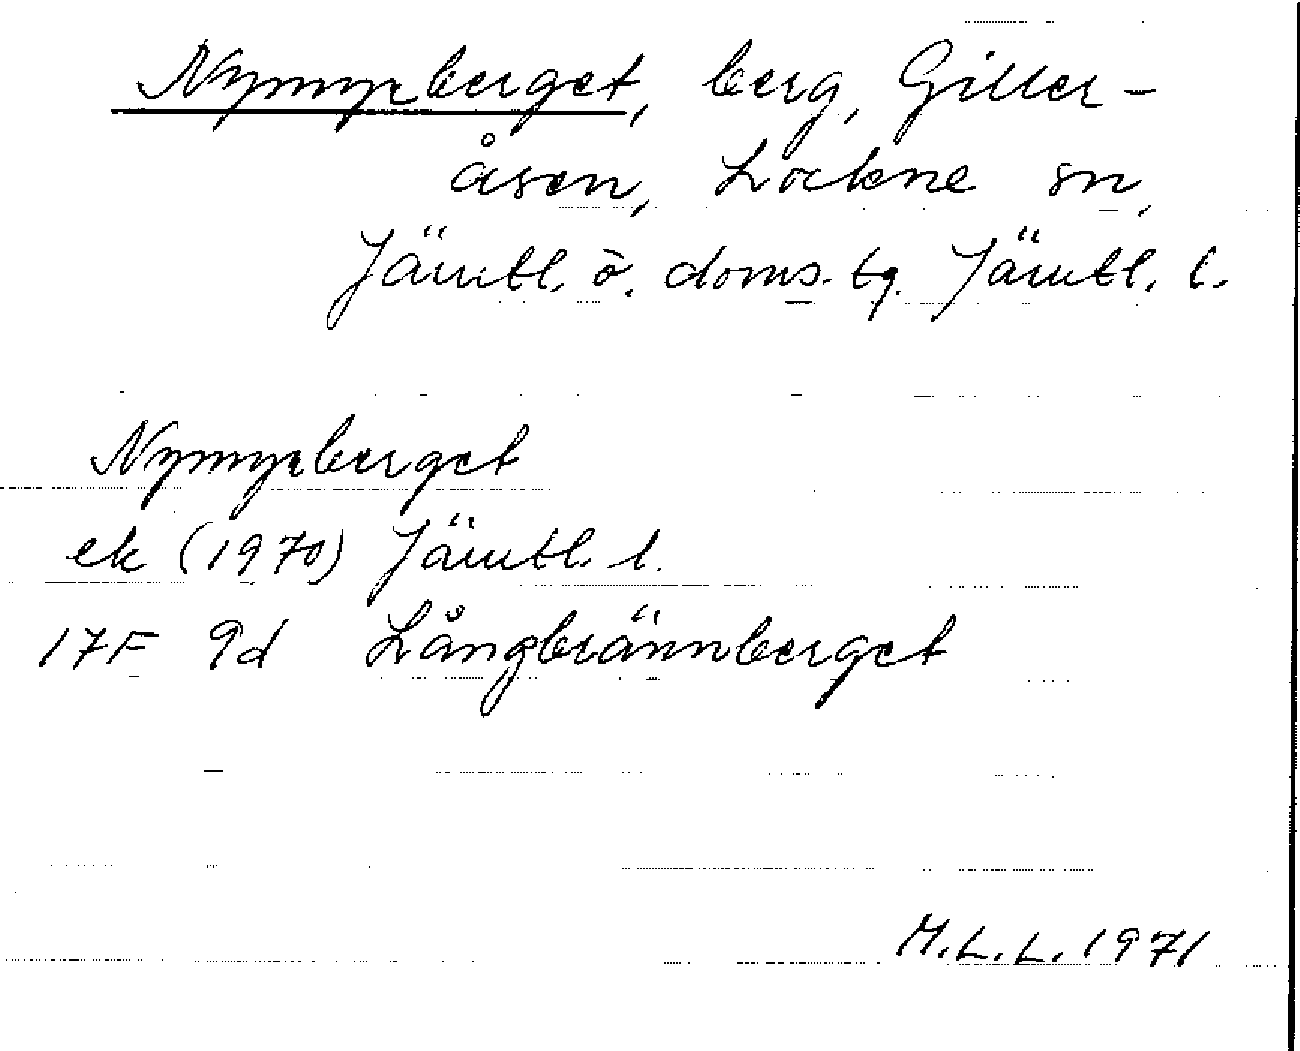 Nymyrberget, berg, Giller-
åsen, Lockne sn,
Jämtl. ö. doms. tg. Jämtl. l.
Nymyrberget
ek (1970) Jämtl. l.
17F 9d Långbrännberget
M.L.L. 1971